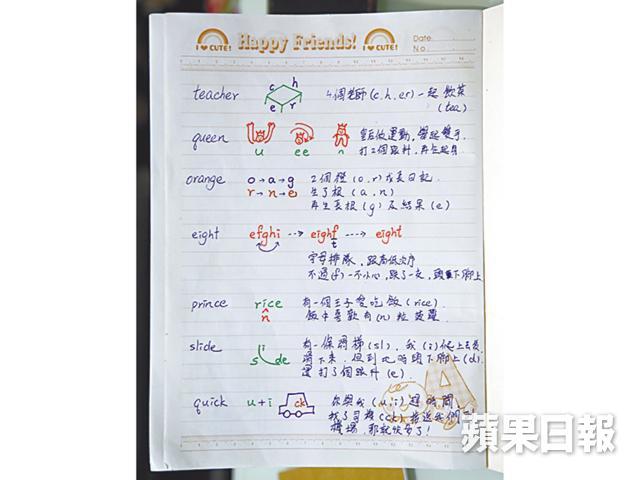 I ♥ CUTE!
Happy Friends!
I ♥ CUTE!
Date:
No:
teacher
c h
e r
4個老師(c, h, er)一起飲茶
(tea)
queen
u ee n
皇后做運動,舉起雙手,
打2個跟斗,再生起身
orange
o→a→g
r→n→e
2個橙(o, r)
生了根(a, n)
再生長根(g)及結果(e)
eight
efghi ⇢ eighf ⇢ eight
t
字母排隊,跟高低次序
不過(f)一不小心,跌了一交,頭下腳上
prince
rice
n
有一個王子愛吃飯(rice)
飯中喜歡有(n)粒菠蘿
slide
s l i de
有一條滑梯(sl),我(i)爬上去
滑下來,但到地時頭下腳上(d)
還打了個跟斗(e)
quick
u + i
ck
你與我(u, i)趕時間
找了司機(ck)
機場,那就快多了!
蘋果日報